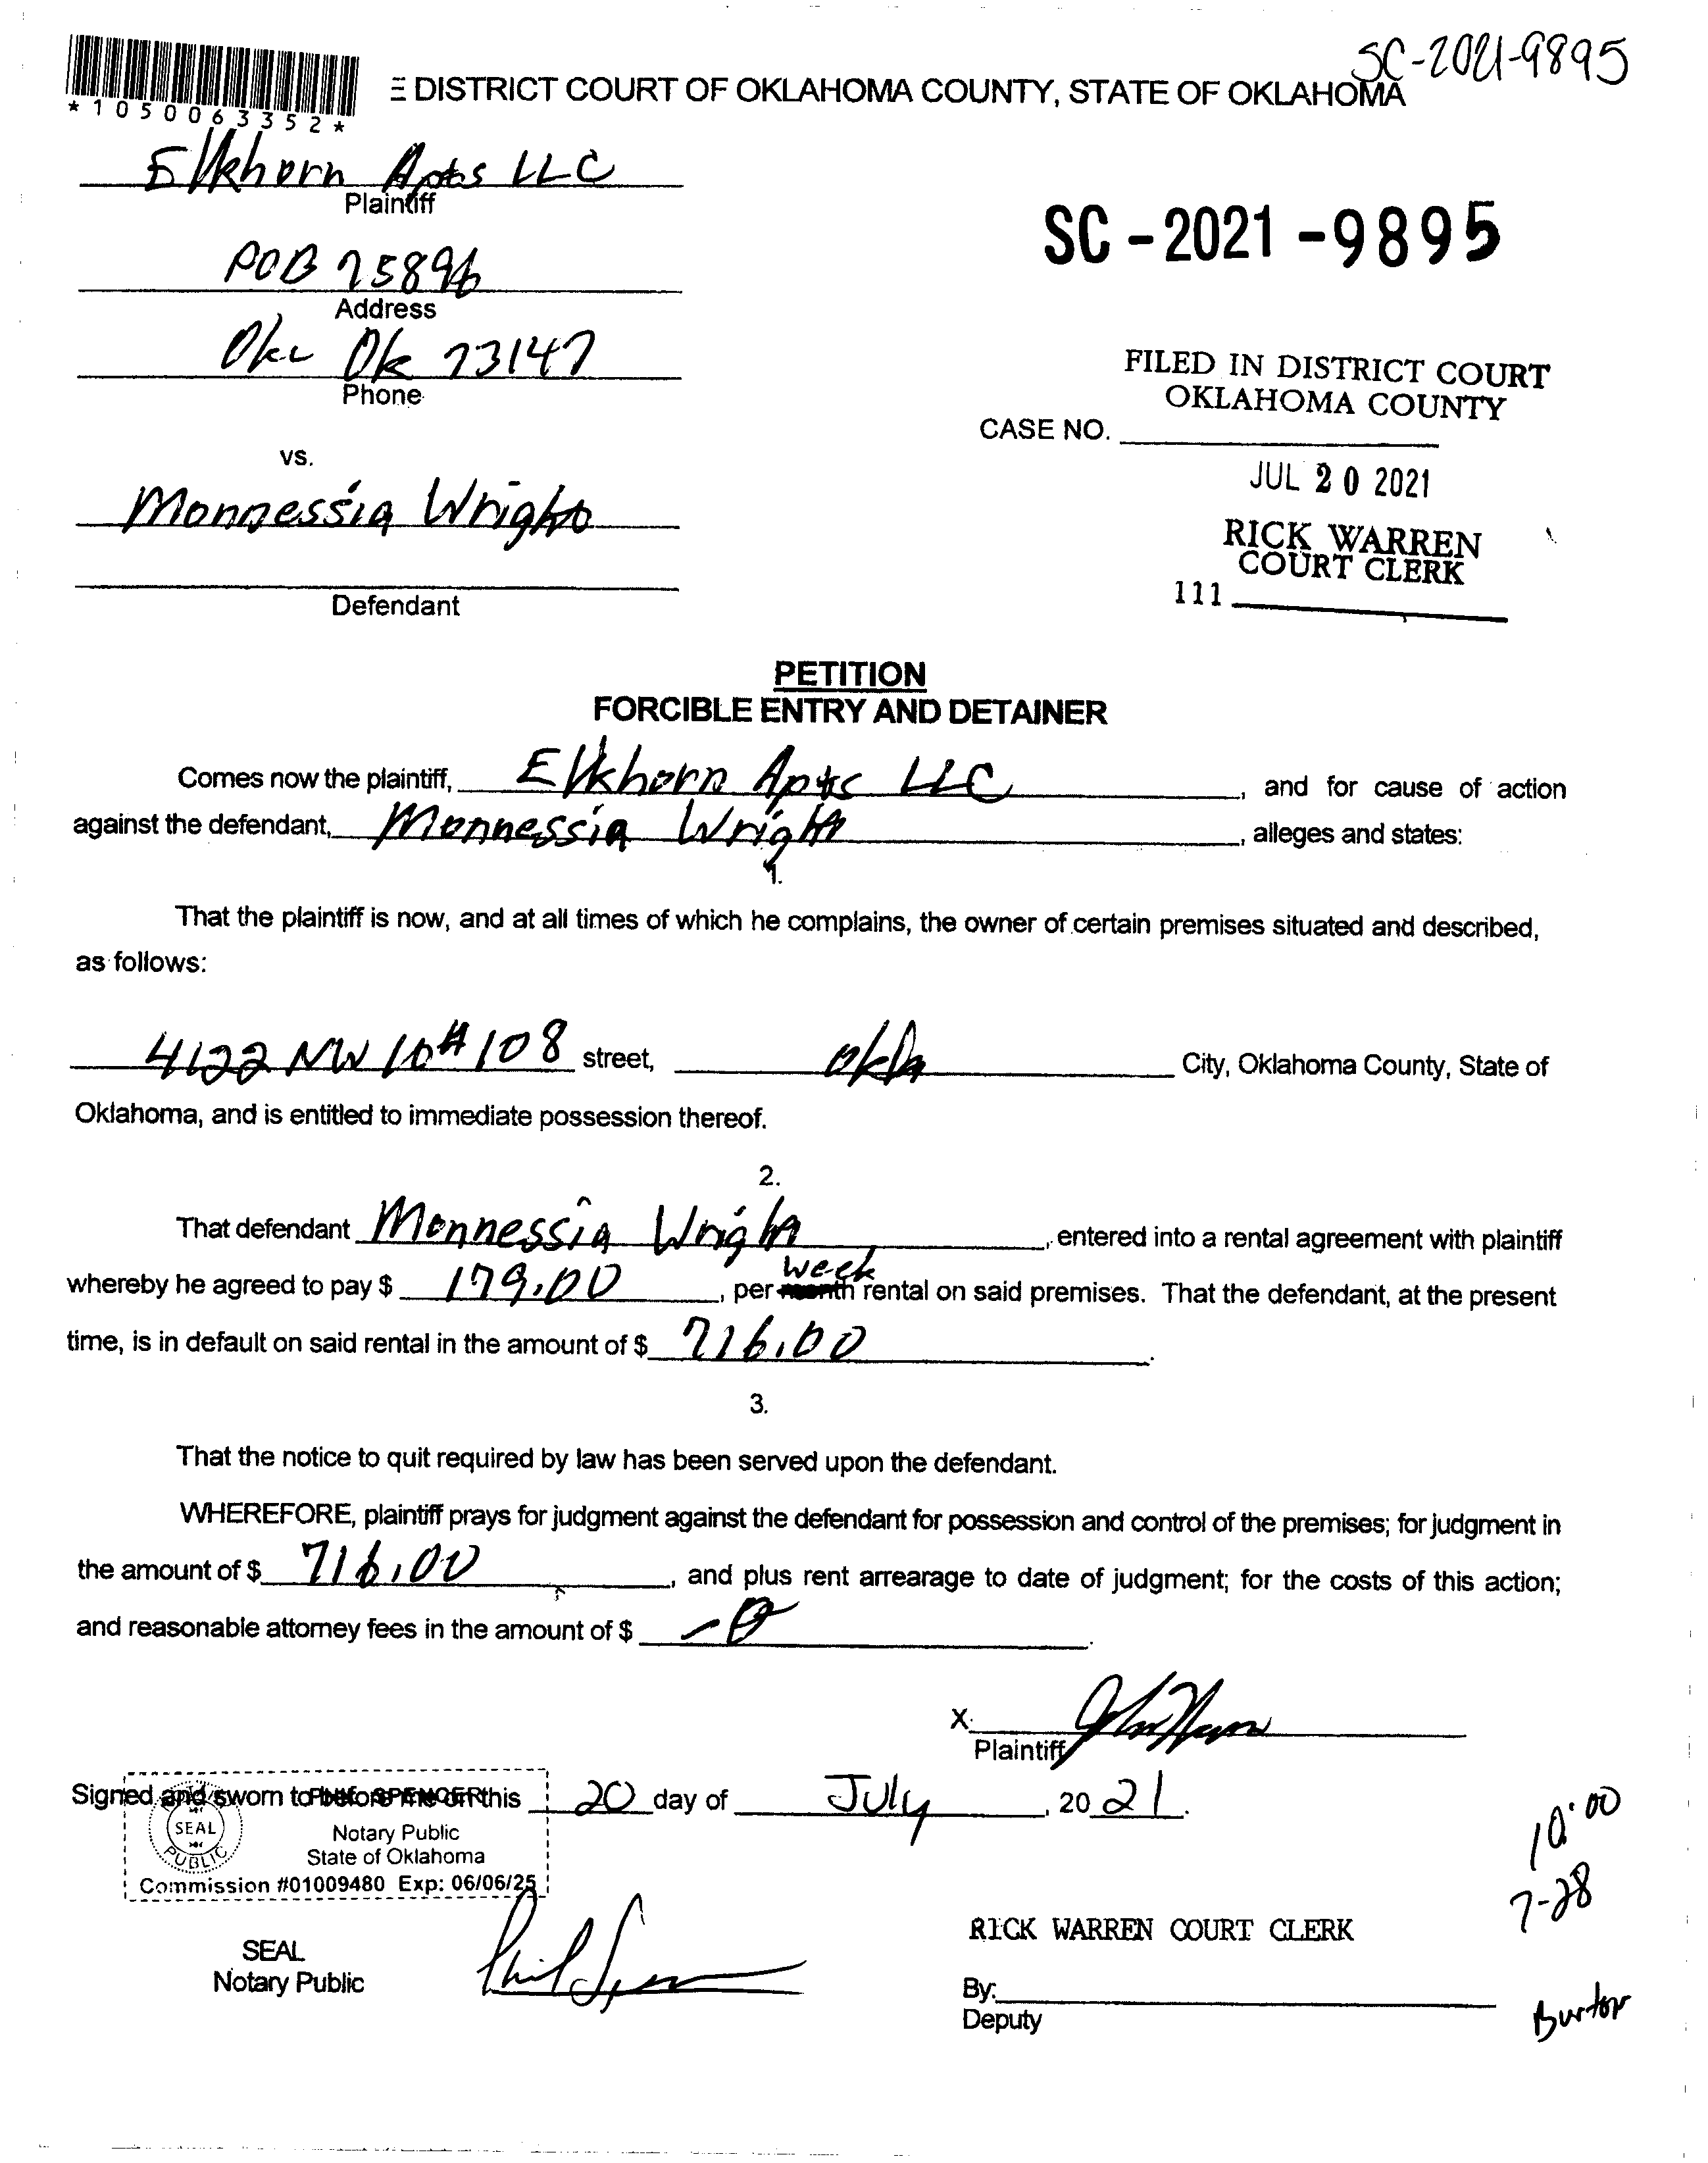 SC-2021-9895
*1050063352*
E DISTRICT COURT OF OKLAHOMA COUNTY, STATE OF OKLAHOMA
Elkhorn Apts LLC
Plaintiff
SC-2021-9895
POB 75896
Address
Okc Ok 73147
Phone
FILED IN DISTRICT COURT
OKLAHOMA COUNTY
CASE NO.
vs.
JUL 20 2021
Monnessia Wright
RICK WARREN
COURT CLERK
111
Defendant
PETITION
FORCIBLE ENTRY AND DETAINER
Comes now the plaintiff, Elkhorn Apts LLC, and for cause of action
against the defendant, Monnessia Wright, alleges and states:
1.
That the plaintiff is now, and at all times of which he complains, the owner of certain premises situated and described,
as follows:
4122 NW 10 #108 street, Okla City, Oklahoma County, State of
Oklahoma, and is entitled to immediate possession thereof.
2.
That defendant Monnessia Wright, entered into a rental agreement with plaintiff
week
whereby he agreed to pay $ 179.00, per month rental on said premises. That the defendant, at the present
time, is in default on said rental in the amount of $ 716.00.
3.
That the notice to quit required by law has been served upon the defendant.
WHEREFORE, plaintiff prays for judgment against the defendant for possession and control of the premises; for judgment in
the amount of $ 716.00, and plus rent arrearage to date of judgment; for the costs of this action;
and reasonable attorney fees in the amount of $ -0.
X
Plaintiff
Signed and sworn to before me on this 20 day of July, 2021.
PHIL SPENCER
SEAL
PUBLIC
Notary Public
State of Oklahoma
Commission #01009480 Exp: 06/06/25
10:00
7-28
SEAL
Notary Public
Phil Spencer
RICK WARREN COURT CLERK
By:
Deputy
Burton